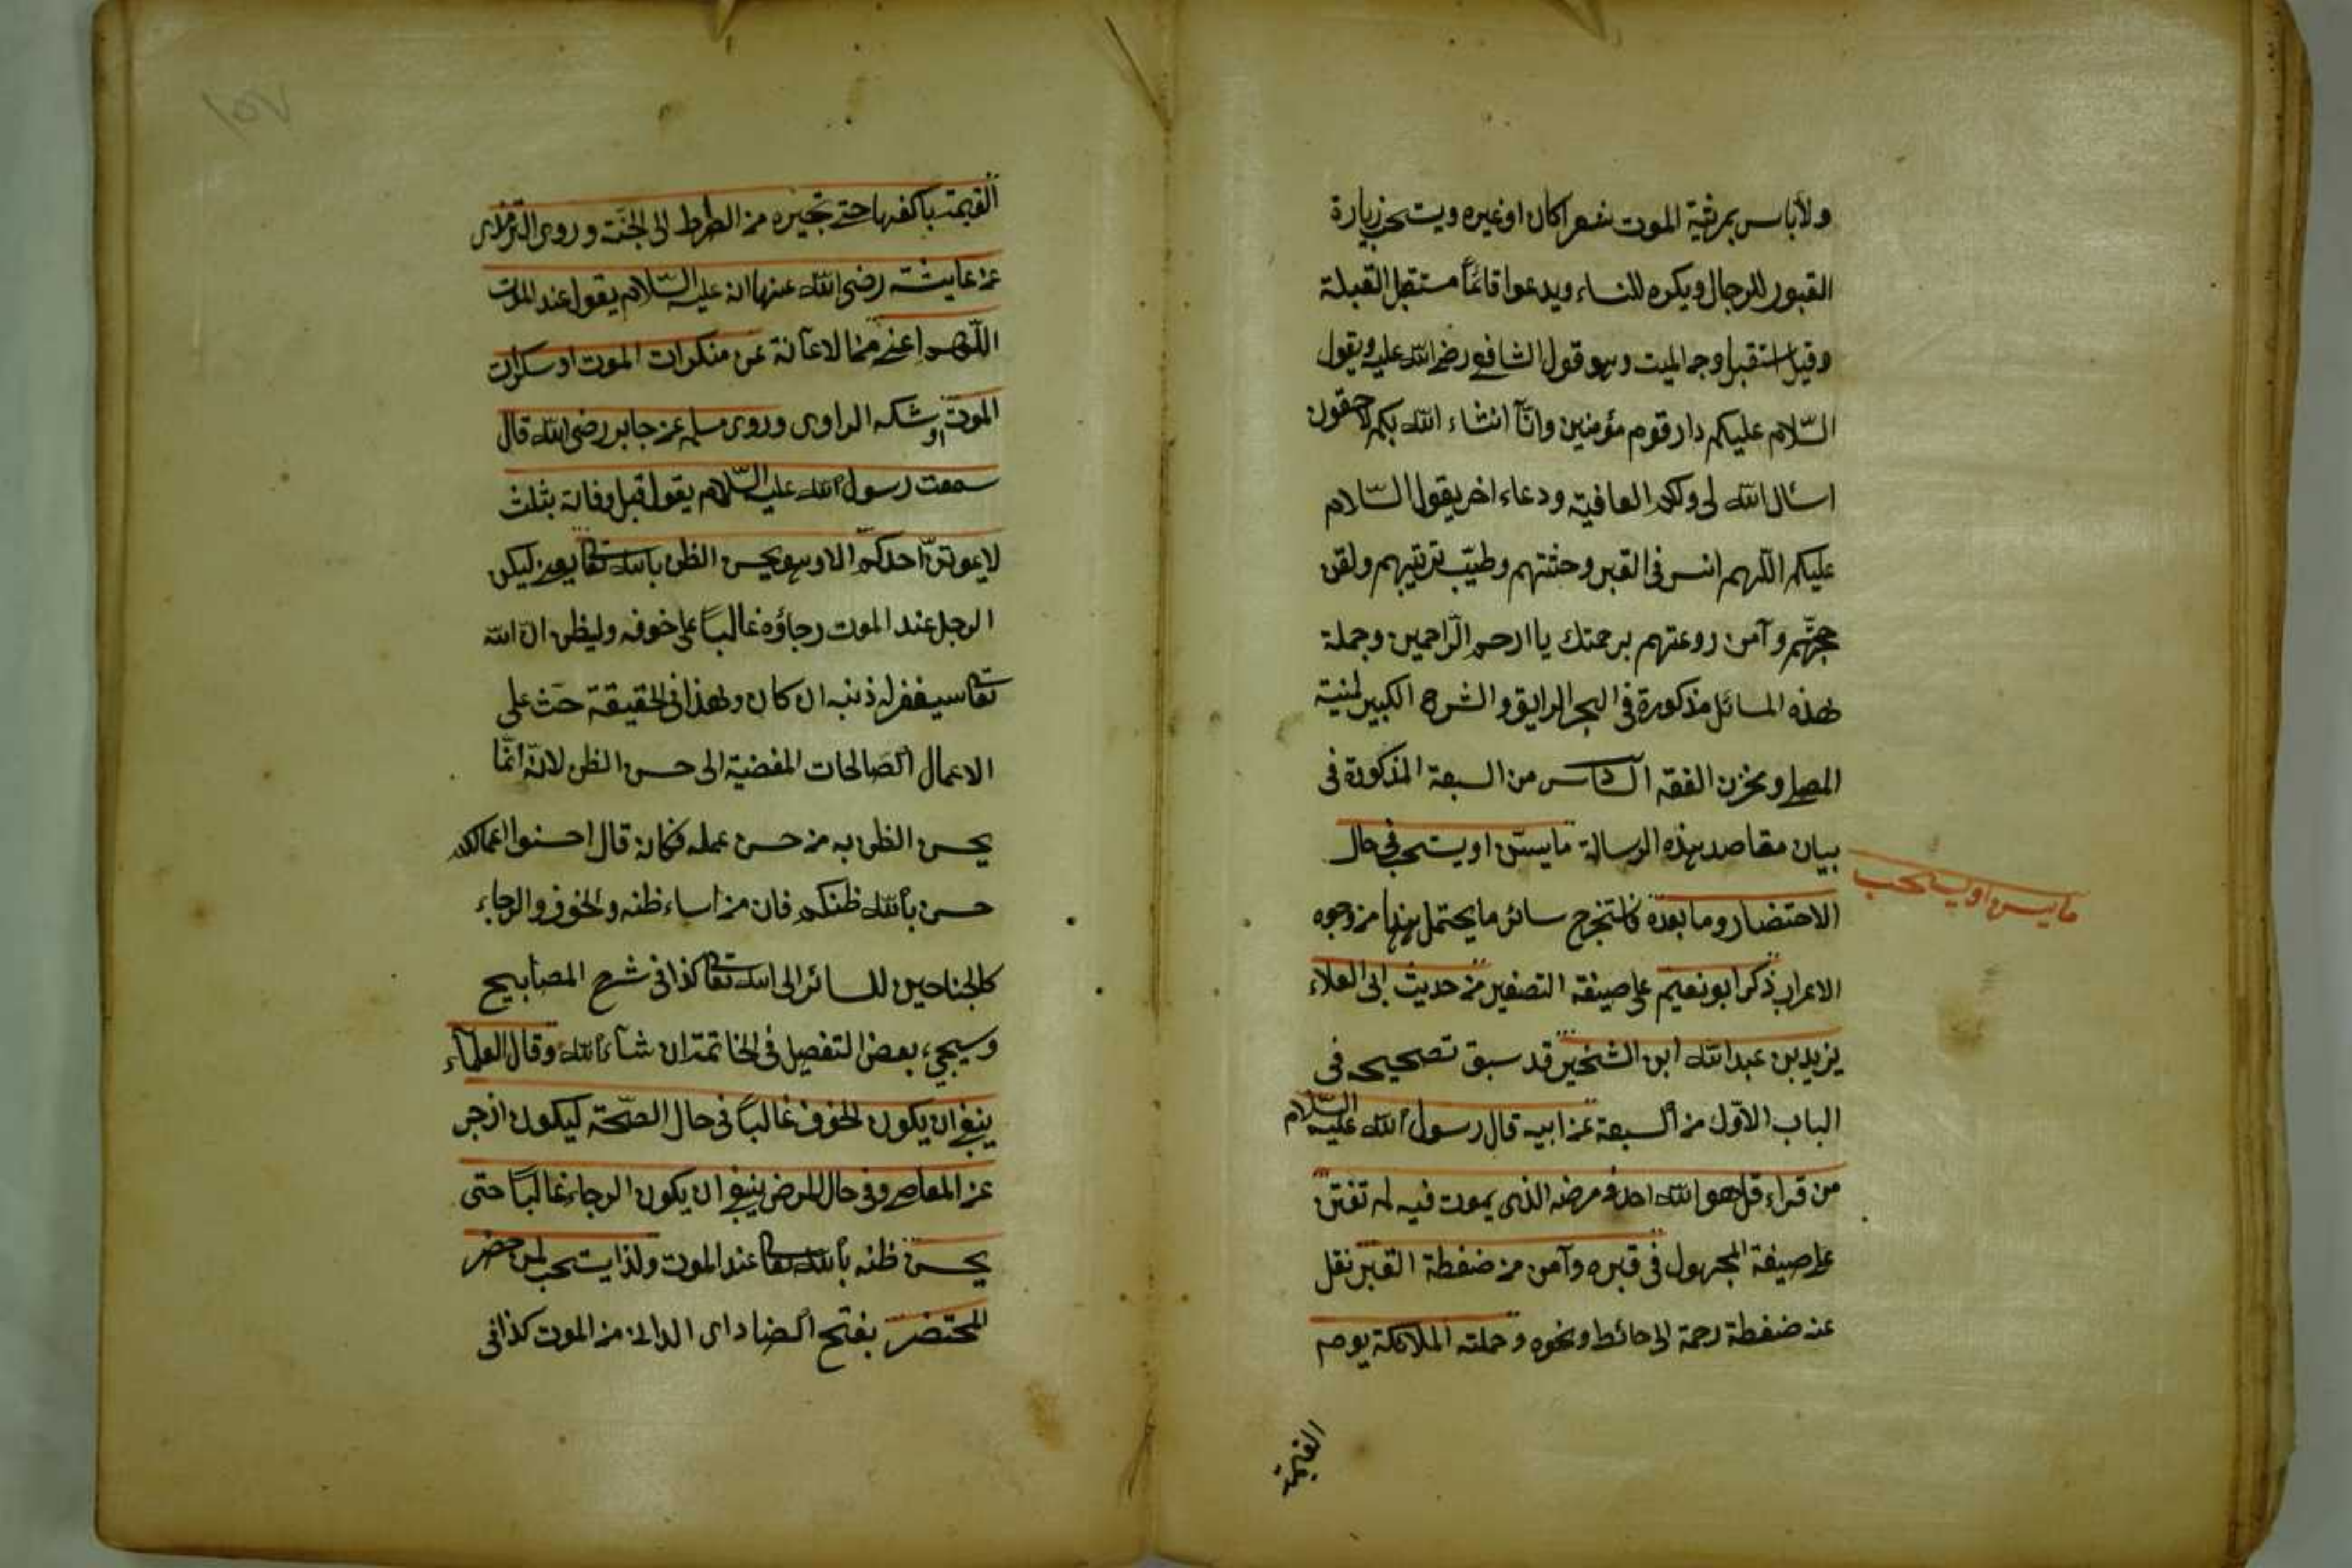 ولا باس بمرثية الموت شعرا كان او غيره ويستحب زيارة
القبور للرجال ويكره للنساء ويدعوا قائمًا مستقبل القبلة
وقيل استقبل وجه الميت وهو قول الشافعي رضي الله عليه ويقول
السّلام عليكم دار قوم مؤمنين وانّا انشاء الله بكم لاحقون
اسئال الله لى ولكم العافية ودعاء اخر يقول السّلام
عليكم اللهم انس فى القبر وحشتهم وطيّب تربتهم ولقن
حجّتهم وآمن روعتهم برحمتك يا ارحم الرّاحمين وجملة
هذه المسائل مذكورة فى البحر الرايق والشرح الكبير لمنية
المصلى ومخزن الفقه السّادس من السبعة المذكورة فى
بيان مقاصد هذه الرسالة ما يسنّ او يستحب فى حال
ما يسن او يستحب
الاحتضار وما بعده فاستخرج سائر ما يحتمل هذا من وجوه
الاعراب ذكر ابو نعيم على صيغة التصغير من حديث ابى العلاء
يزيد بن عبد الله ابن الشخير قد سبق تصحيحه فى
الباب الاوّل من السبعة عن ابيه قال رسول الله عليه السّلام
من قراء قل هو الله احد فى مرضه الذى يموت فيه لم تفتن
على صيغة المجهول فى قبره وآمن من ضغطة القبر نقل
عنه ضغطة رحمة الى حائط ونحوه وحملته الملائكة يوم
القيمة
١٥٧
القيمة باكفها حتى تجيزه من الصراط الى الجنّة وروى الترمذى
عن عايشة رضى الله عنها انه عليه السّلام يقول عند الموت
اللّهم اعنى من الاعانة عن منكرات الموت او سكرات
الموت او شكه الراوى وروى مسلم عن جابر رضى الله قال
سمعت رسول الله عليه السّلام يقول قبل وفاته بثلث
لا يموتنّ احدكم الا وهو يحسن الظن بالله تعا يعنى ليكن
الرجل عند الموت رجاؤه غالبًا على خوفه وليظن انّ الله
تعا سيغفر له ذنبه ان كان وهذا فى الحقيقة حَث على
الاعمال الصّالحات المفضية الى حسن الظن لانّه انّما
يحسن الظن به من حسن عمله فكانه قال احسنوا اعمالكم
حسن بالله ظنكم فان من اساء ظنه والخوف والرجاء
كالجناحين للسائر الى الله تعا كذا فى شرح المصابيح
وسيجىء بعض التفصيل فى الخاتمة ان شاء الله وقال العلماء
ينبغى ان يكون الخوف غالبًا فى حال الصّحّة ليكون ازجر
عن المعاصى وفى حال المرض ينبغى ان يكون الرجاء غالبًا حتى
يحسن ظنه بالله تعا عند الموت ولذا يستحب لمن حضر
المحتضر بفتح الضاد اى الدانى من الموت كذا فى